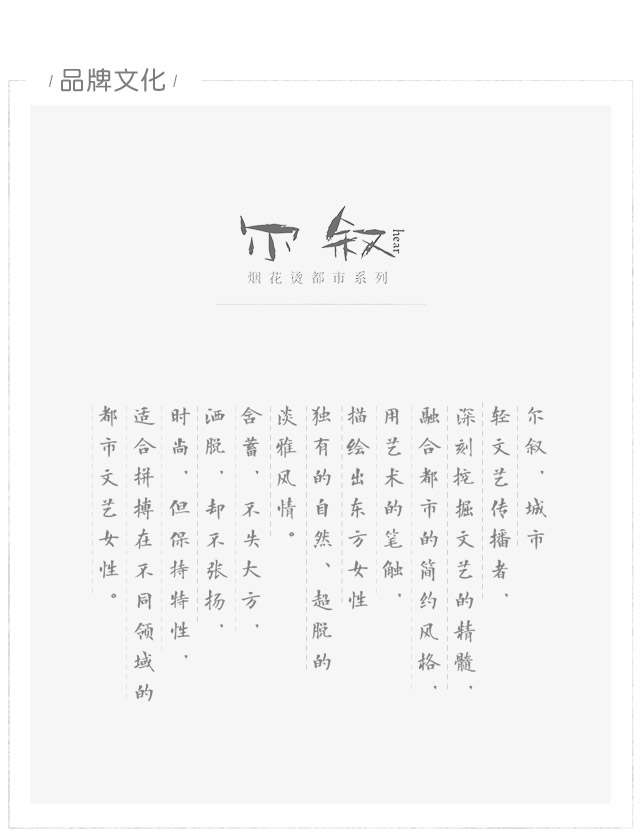 / 品牌文化 /
尔叙
hear
烟花烫都市系列
尔叙，城市
轻文艺传播者，
深刻挖掘文艺的精髓，
融合都市的简约风格，
用艺术的笔触，
描绘出东方女性
独有的自然、超脱的
淡雅风情。
含蓄，不失大方，
洒脱，却不张扬，
时尚，但保持特性，
适合拼搏在不同领域的
都市文艺女性。